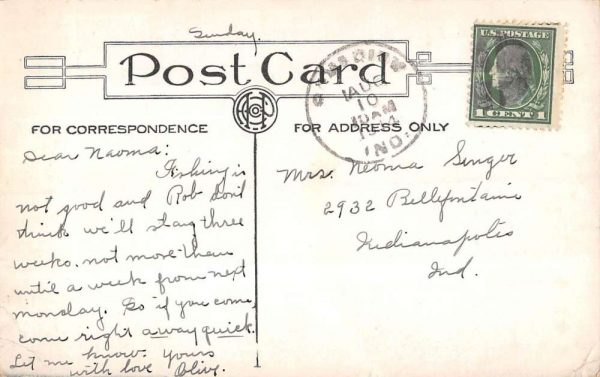 Sunday.
Post Card
FOR CORRESPONDENCE
FOR ADDRESS ONLY
U.S. POSTAGE
1 CENT 1
AUG
10
10 AM
1914
IND.
Dear Naoma:
Fishing is
not good and Rob don't
think we'll stay three
weeks. not more than
until a week from next
monday. So if you come,
come right away quick.
Let me know. yours
with love Olive.
Mrs. Neoma Singer
2932 Bellefontaine
Indianapolis
Ind.